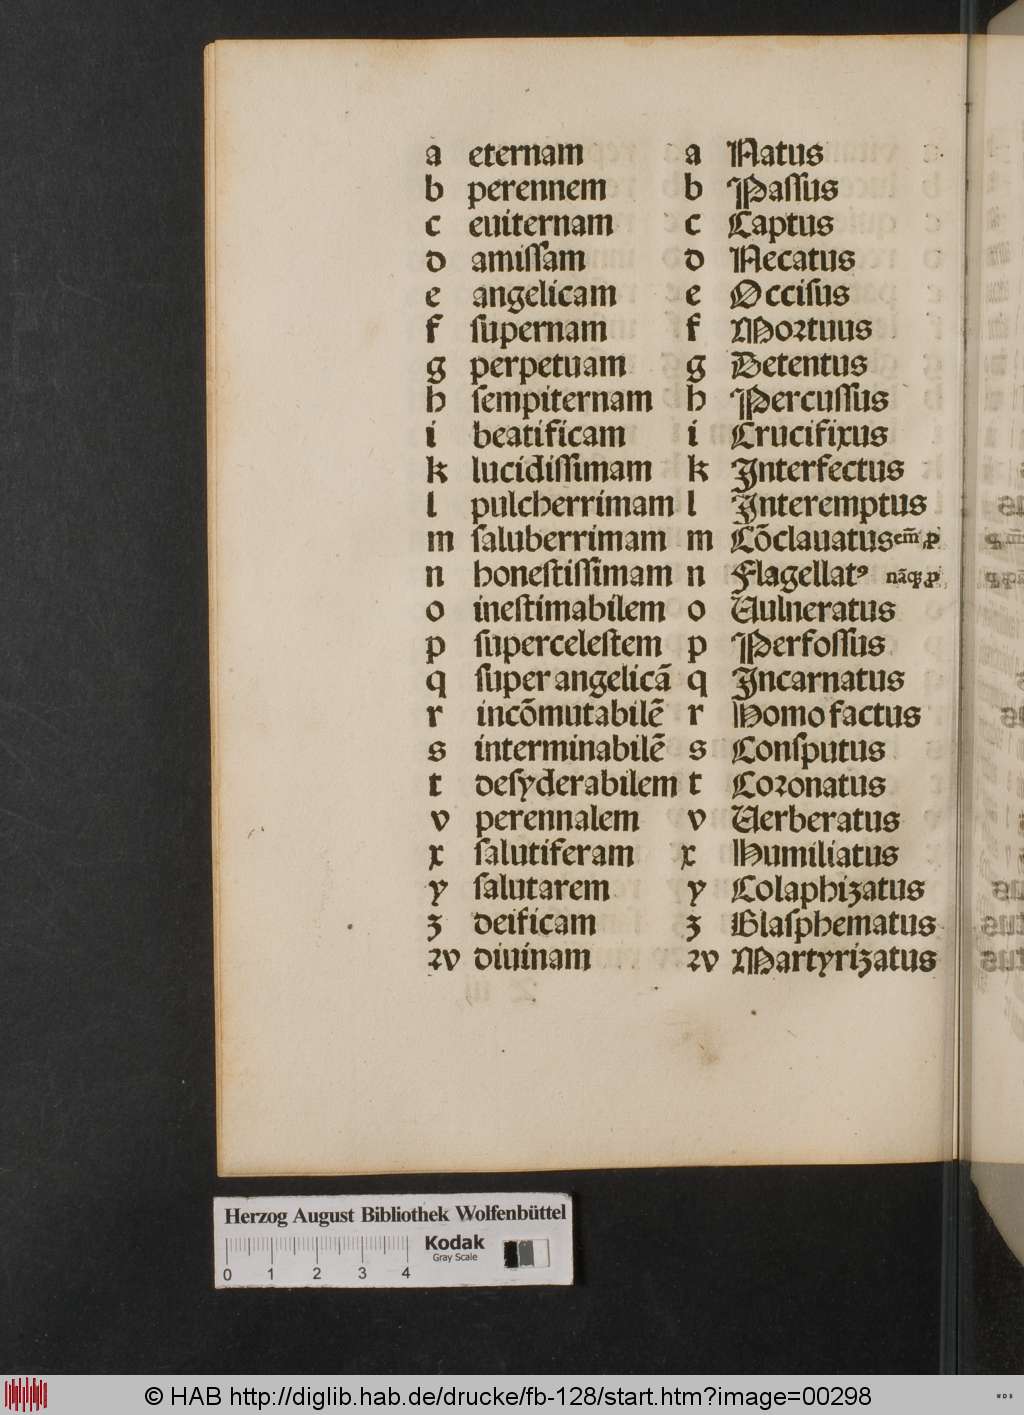 a eternam a Natus
b perennem b Paſſus
c euiternam c Captus
d amiſſam d Necatus
e angelicam e Occiſus
f ſupernam f Moꝛtuus
g perpetuam g Detentus
h ſempiternam h Percuſſus
i beatificam i Crucifixus
k lucidiſſimam k Interfectus
l pulcherrimam l Interemptus
m ſaluberrimam m Cōclauatus em̄ ꝓ
n honeſtiſſimam n Flagellatꝰ nāqꝫ ꝓ
o ineſtimabilem o Uulneratus
p ſuperceleſtem p Perfoſſus
q ſuper angelicā q Incarnatus
r incōmutabilē r Homo factus
s interminabilē s Conſputus
t deſyderabilem t Coꝛonatus
v perennalem v Uerberatus
x ſalutiferam x Humiliatus
y ſalutarem y Colaphizatus
z deificam z Blaſphematus
ꝛv diuinam ꝛv Martyrizatus
Herzog August Bibliothek Wolfenbüttel
Kodak
Gray Scale
0 1 2 3 4
© HAB http://diglib.hab.de/drucke/fb-128/start.htm?image=00298